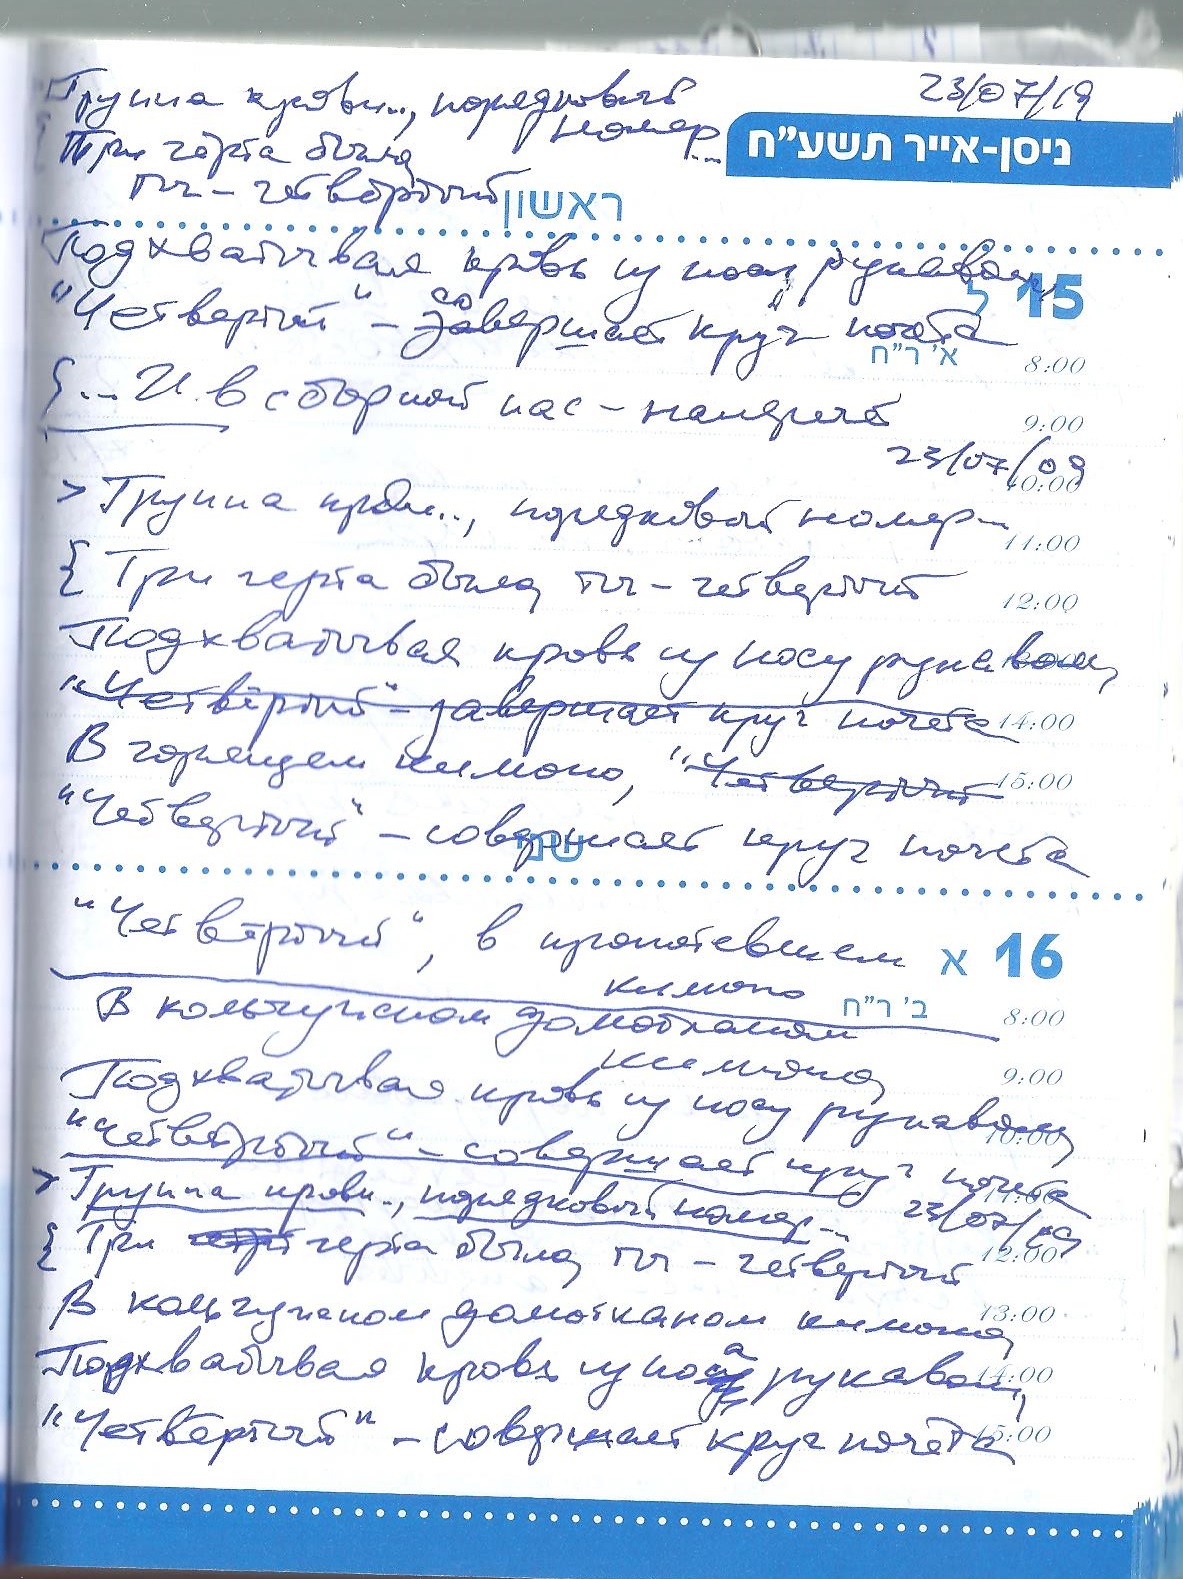 Группа крови.., порядковый 23/07/19
номер...
ניסן-אייר תשע״ח
Три черта было,
ты - четвёртый
ראשון
Подхватывая кровь из носа, рукавом,
15 ל
"Четвертый" - совершает круг почёта
א' ר"ח
8:00
... И в сборной нас -
9:00
23/07/09
10:00
> Группа крови.., порядковый номер...
11:00
{ Три черта было, ты - четвертый
12:00
Подхватывая кровь из носу рукавом,
"Четвёртый" - завершает круг почета
14:00
В горящем кимоно, "Четвертый
15:00
"Четвертый" - совершает круг почета
שני
"Четвёртый", в пропотевшем
16 א
кимоно
ב' ר"ח
8:00
В кольчужном домотканом
кимоно,
9:00
Подхватывая кровь из носу рукавом,
10:00
"Четвёртый" - совершает круг почета
11:00
> Группа крови.., порядковый номер...
23/07/09
{ Три черта было, ты - четвертый
12:00
В кольчужном домотканом кимоно,
13:00
Подхватывая кровь из носа рукавом,
14:00
"Четвёртый" - совершает круг почёта
15:00